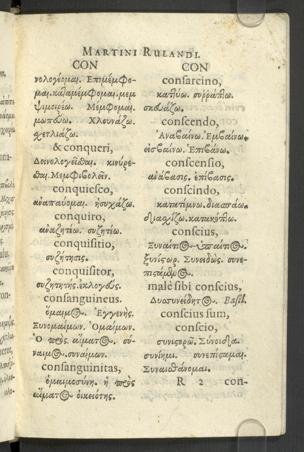 MARTINI RULANDI.
CON
νολογέομαι. Επιμέμφο-
μαι. καταμέμφομαι. μεμ
ψιμοιρέω. Μέμφομαι.
Χλουνάζω.
χετλιάζω.
& conqueri,
Δεινολογεῖσθαι. κινύρε-
conquiesco,
ἀναπαύομαι. ἡσυχάζω.
conquiro,
ἀναζητέω. συζητέω.
conquisitio,
συζήτησις.
conquisitor,
συζητητὴς.
consanguineus.
ὅμαιμος. Ἐγγενής.
Συνομαίμων. Ὁμαίμων.
Ὁ πρὸς αἵματος. σύ-
ναιμος. συναίμων.
consanguinitas,
ὁμαιμοσύνη. ἡ πρὸς
αἵματος οἰκειότης.
CON
consarcino,
συρράπτω.
σκευάζω.
conscendo,
Ἀναβαίνω. Εμβαίνω.
εἰσβαίνω. Επιβαίνω.
conscensio,
ἀνάβασις. ἐπίβασις.
conscindo,
κατατέμνω. διασπάω.
διασχίζω. κατακόπτω.
conscius,
ξυνίστωρ. Συνειδώς. συνε-
πιστάμενος.
malè sibi conscius,
Δυσσυνείδητος. Basil.
conscius sum,
conscio,
Σύνοιδα.
συνίημι. συνεπίσταμαι.
Συναισθάνομαι.
R 2 con-